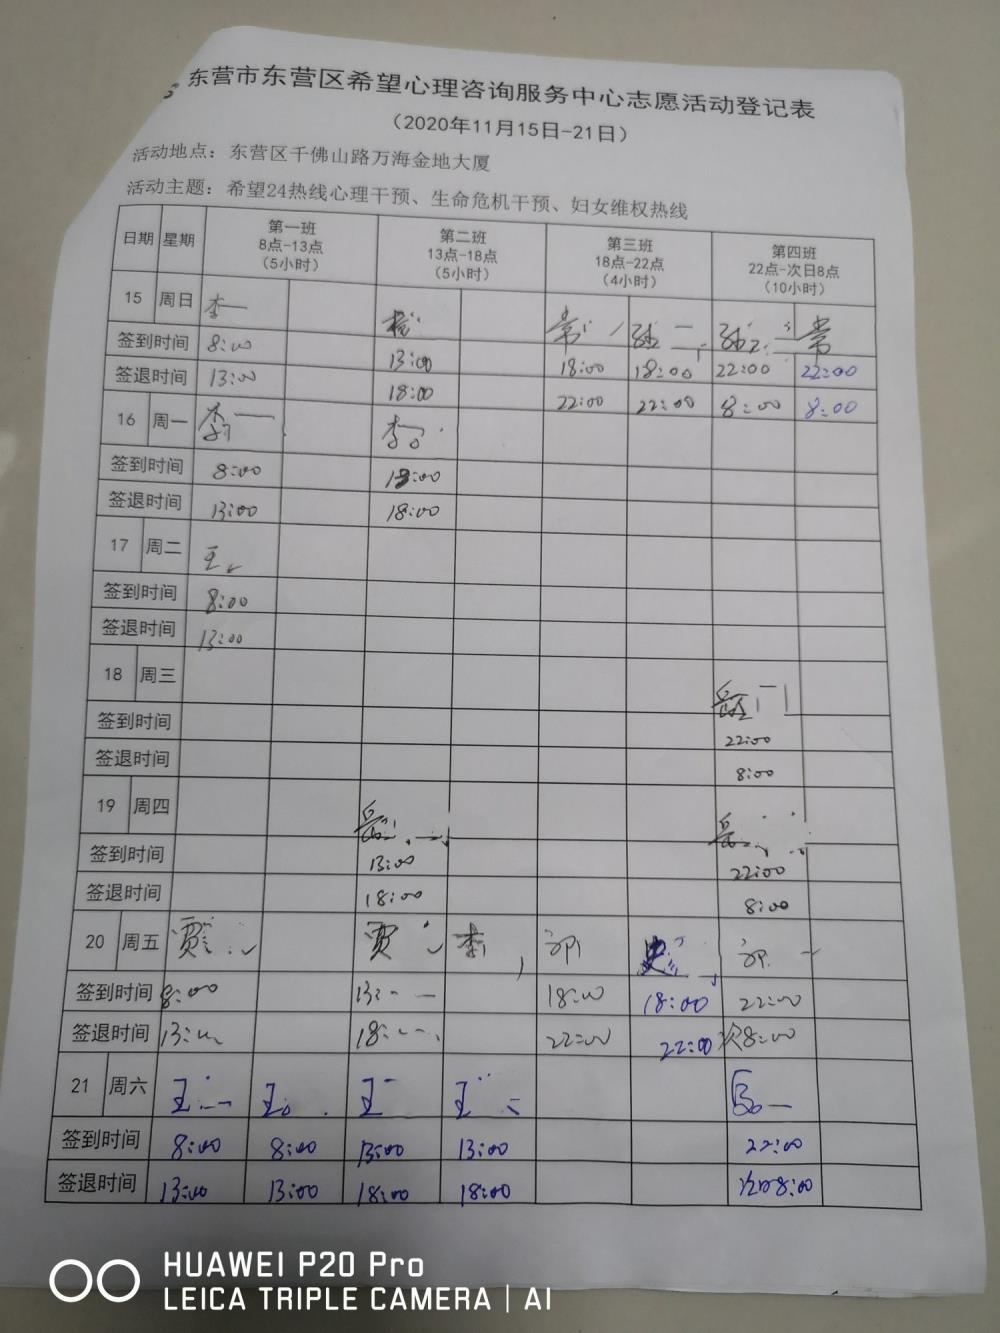 东营市东营区希望心理咨询服务中心志愿活动登记表
（2020年11月15日-21日）
活动地点：东营区千佛山路万海金地大厦
活动主题：希望24热线心理干预、生命危机干预、妇女维权热线
日期 星期 第一班 8点-13点 （5小时） 第二班 13点-18点 （5小时） 第三班 18点-22点 （4小时） 第四班 22点-次日8点 （10小时）
15 周日 李 常 常
签到时间 8:00 13:00 18:00 18:00 22:00 22:00
签退时间 13:00 18:00 22:00 22:00 8:00 8:00
16 周一 李
签到时间 8:00 13:00
签退时间 13:00 18:00
17 周二 王
签到时间 8:00
签退时间 13:00
18 周三 岳
签到时间 22:00
签退时间 8:00
19 周四 岳 岳
签到时间 13:00 22:00
签退时间 18:00 8:00
20 周五 贾 贾 李 史
签到时间 8:00 13: 18:00 18:00 22:00
签退时间 13: 18: 22:00 22:00 次8:00
21 周六 王 王 王 王
签到时间 8:00 8:00 13:00 13:00 22:00
签退时间 13:00 13:00 18:00 18:00 次日8:00
HUAWEI P20 Pro
LEICA TRIPLE CAMERA | AI